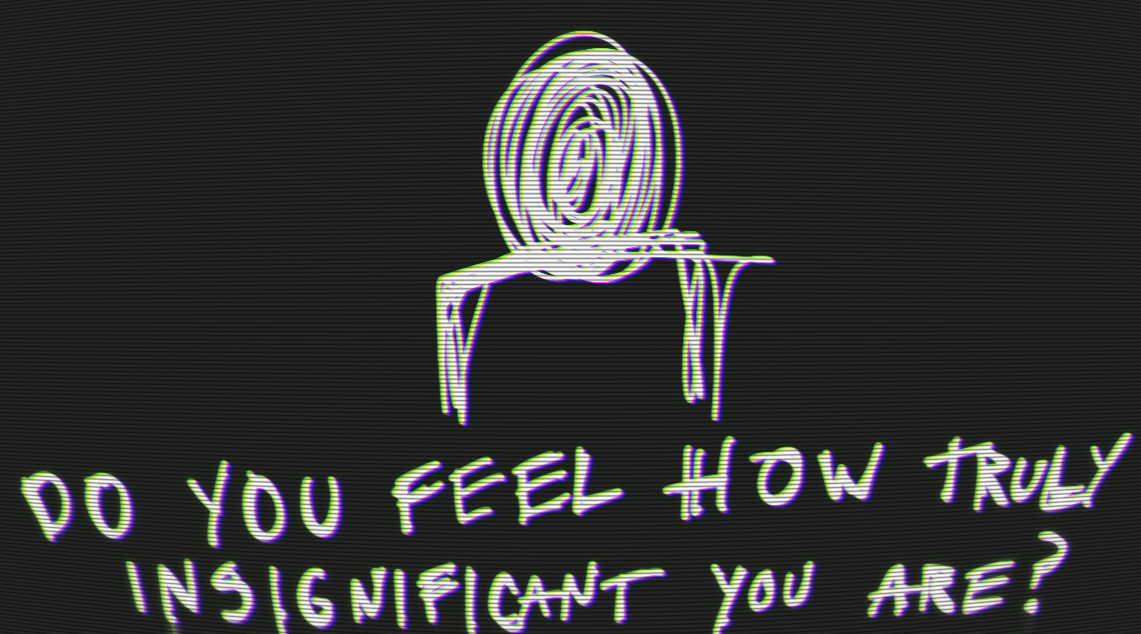 DO YOU FEEL HOW TRULY
INSIGNIFICANT YOU ARE?